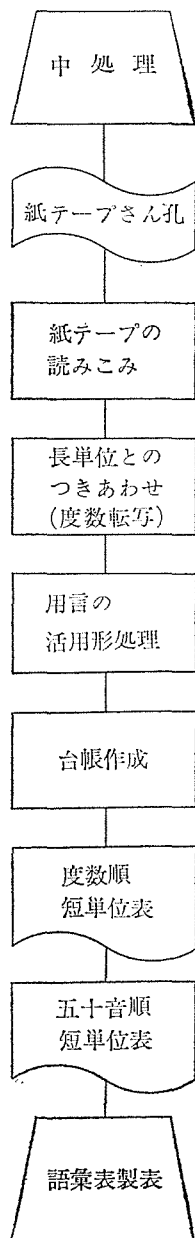 中処理
紙テープさん孔
紙テープの
読みこみ
長単位との
つきあわせ
(度数転写)
用言の
活用形処理
台帳作成
度数順
短単位表
五十音順
短単位表
語彙表製表